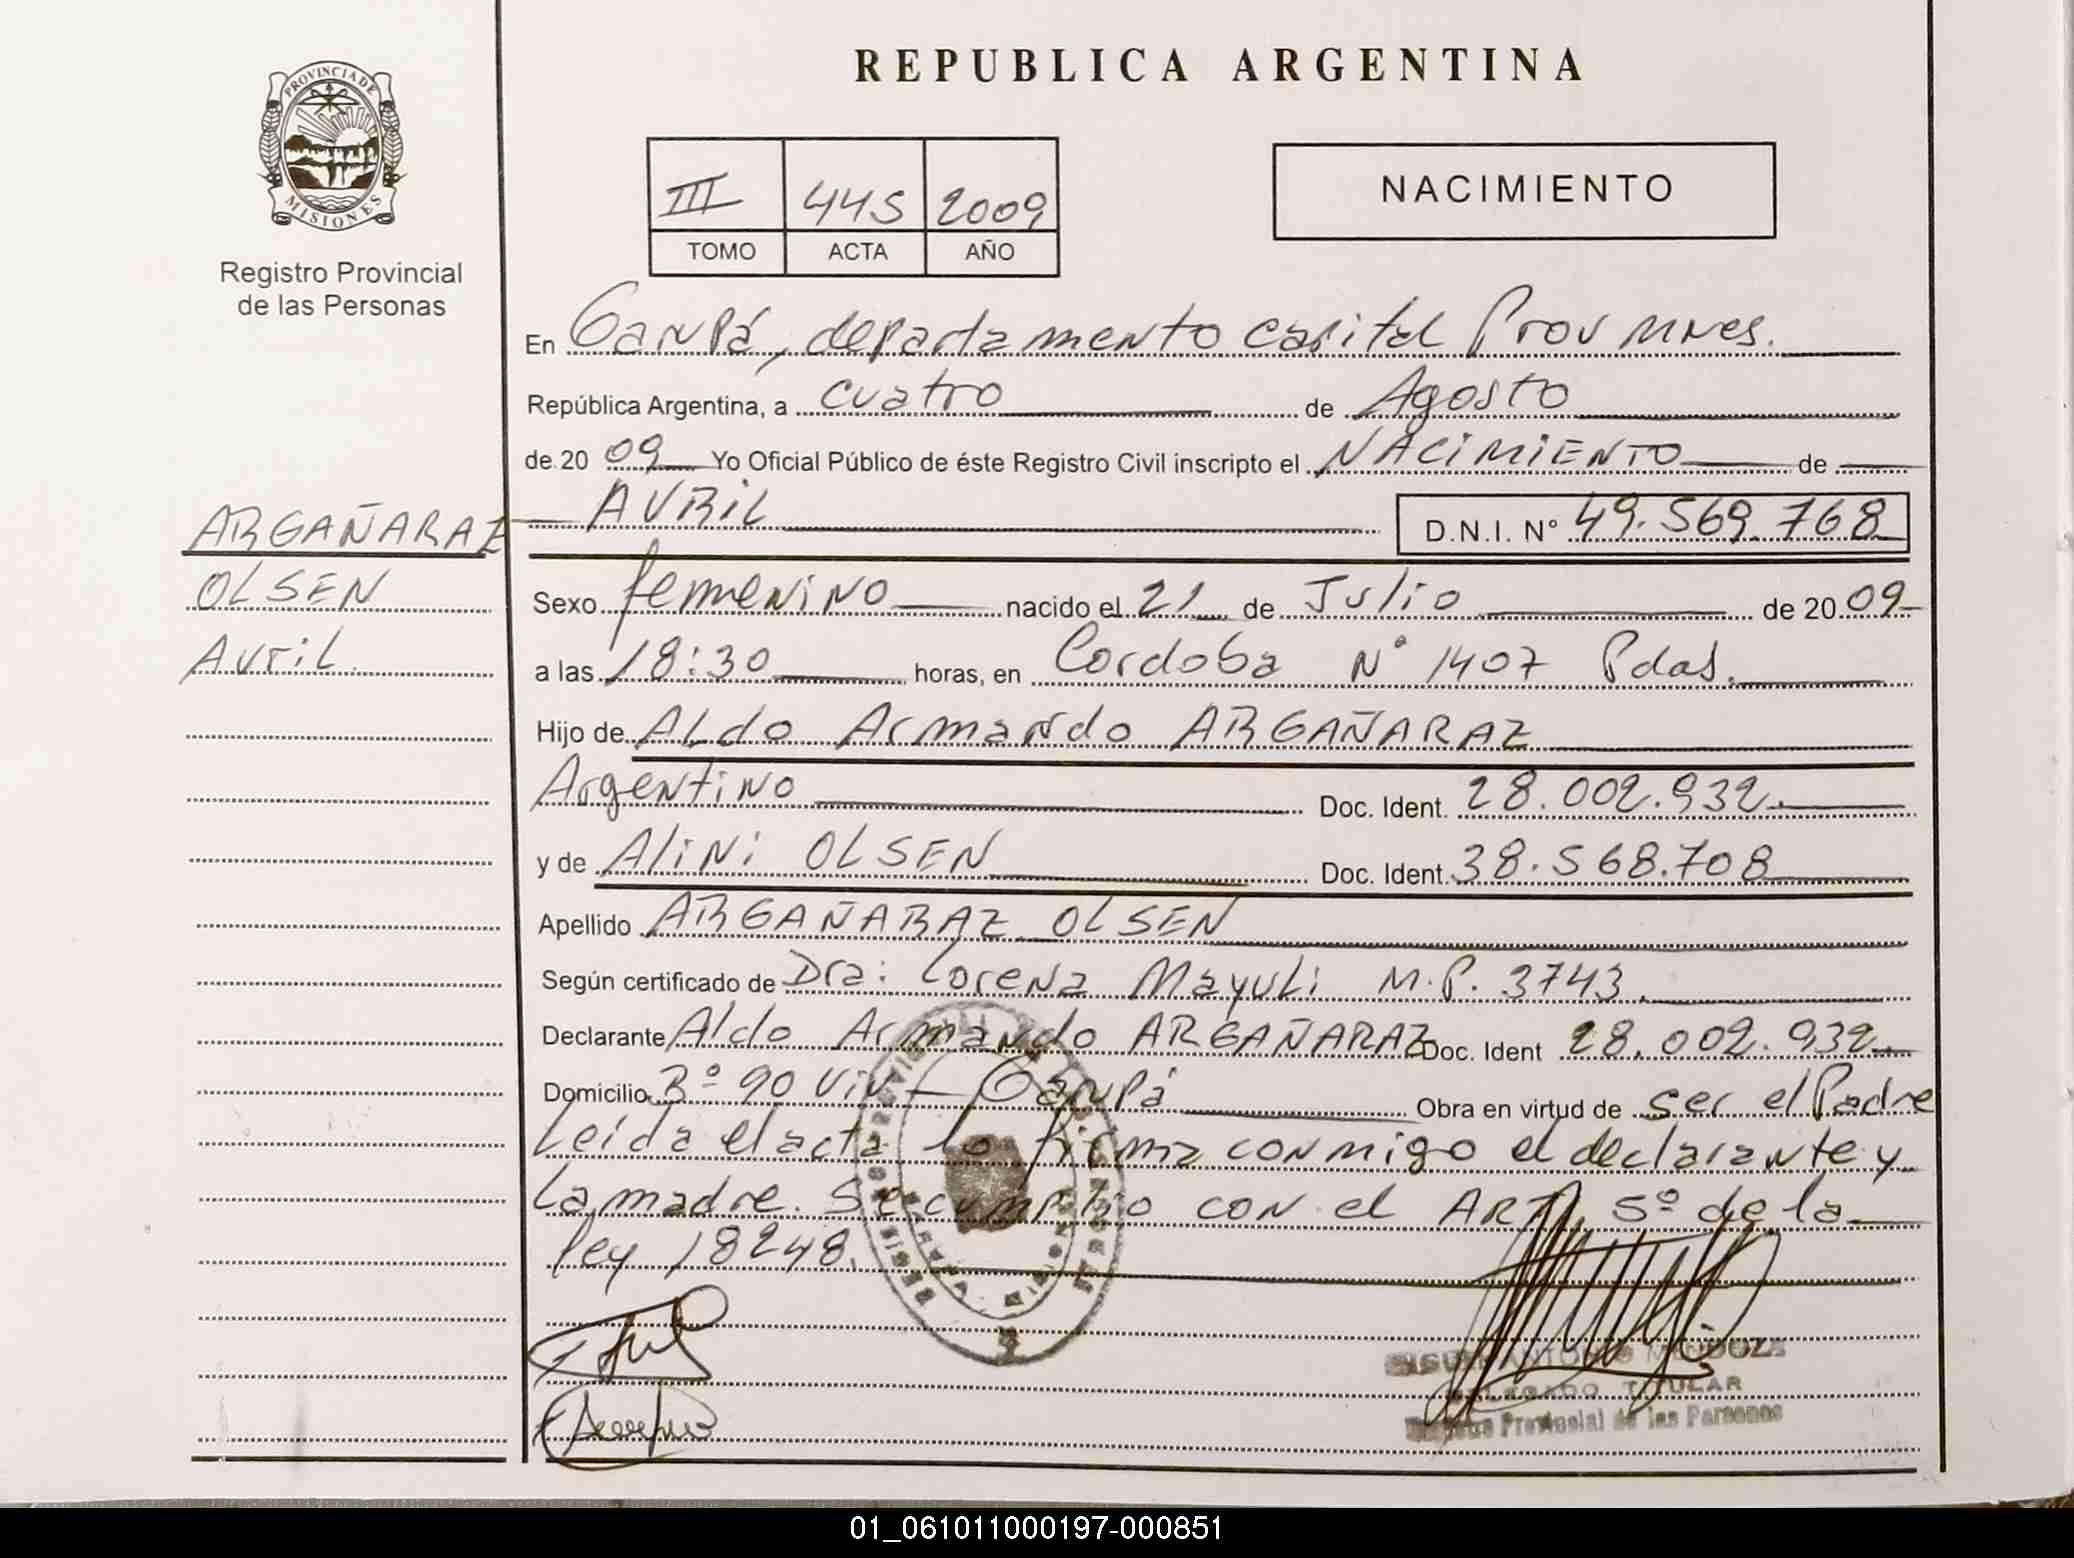 REPUBLICA ARGENTINA
PROVINCIA DE
MISIONES
Registro Provincial
de las Personas
III 445 2009
TOMO ACTA AÑO
NACIMIENTO
En Garupá, departamento capital Prov Mnes.
República Argentina, a cuatro de Agosto
de 20 09 Yo Oficial Público de éste Registro Civil inscripto el NACIMIENTO de
AVRIL D.N.I. N° 49.569.768
ARGAÑARAZ
OLSEN
Avril.
Sexo femenino nacido el 21 de Julio de 20 09
a las 18:30 horas, en Cordoba N° 1407 Pdas.
Hijo de Aldo Armando ARGAÑARAZ
Argentino Doc. Ident. 28.002.932.
y de Alini OLSEN Doc. Ident. 38.568.708
Apellido ARGAÑARAZ OLSEN
Según certificado de Dra: Lorena Mayuli M.P. 3743.
Declarante Aldo Armando ARGAÑARAZ Doc. Ident 28.002.932.
Domicilio B° 90 Viv - Garupá Obra en virtud de ser el Padre
Leída el acta lo firma conmigo el declarante y
la madre. Se cumplio con el ART. 5° de la
ley 18248.
ANTONIO MENDOZA
DELEGADO TITULAR
Provincial de las Personas
01_061011000197-000851